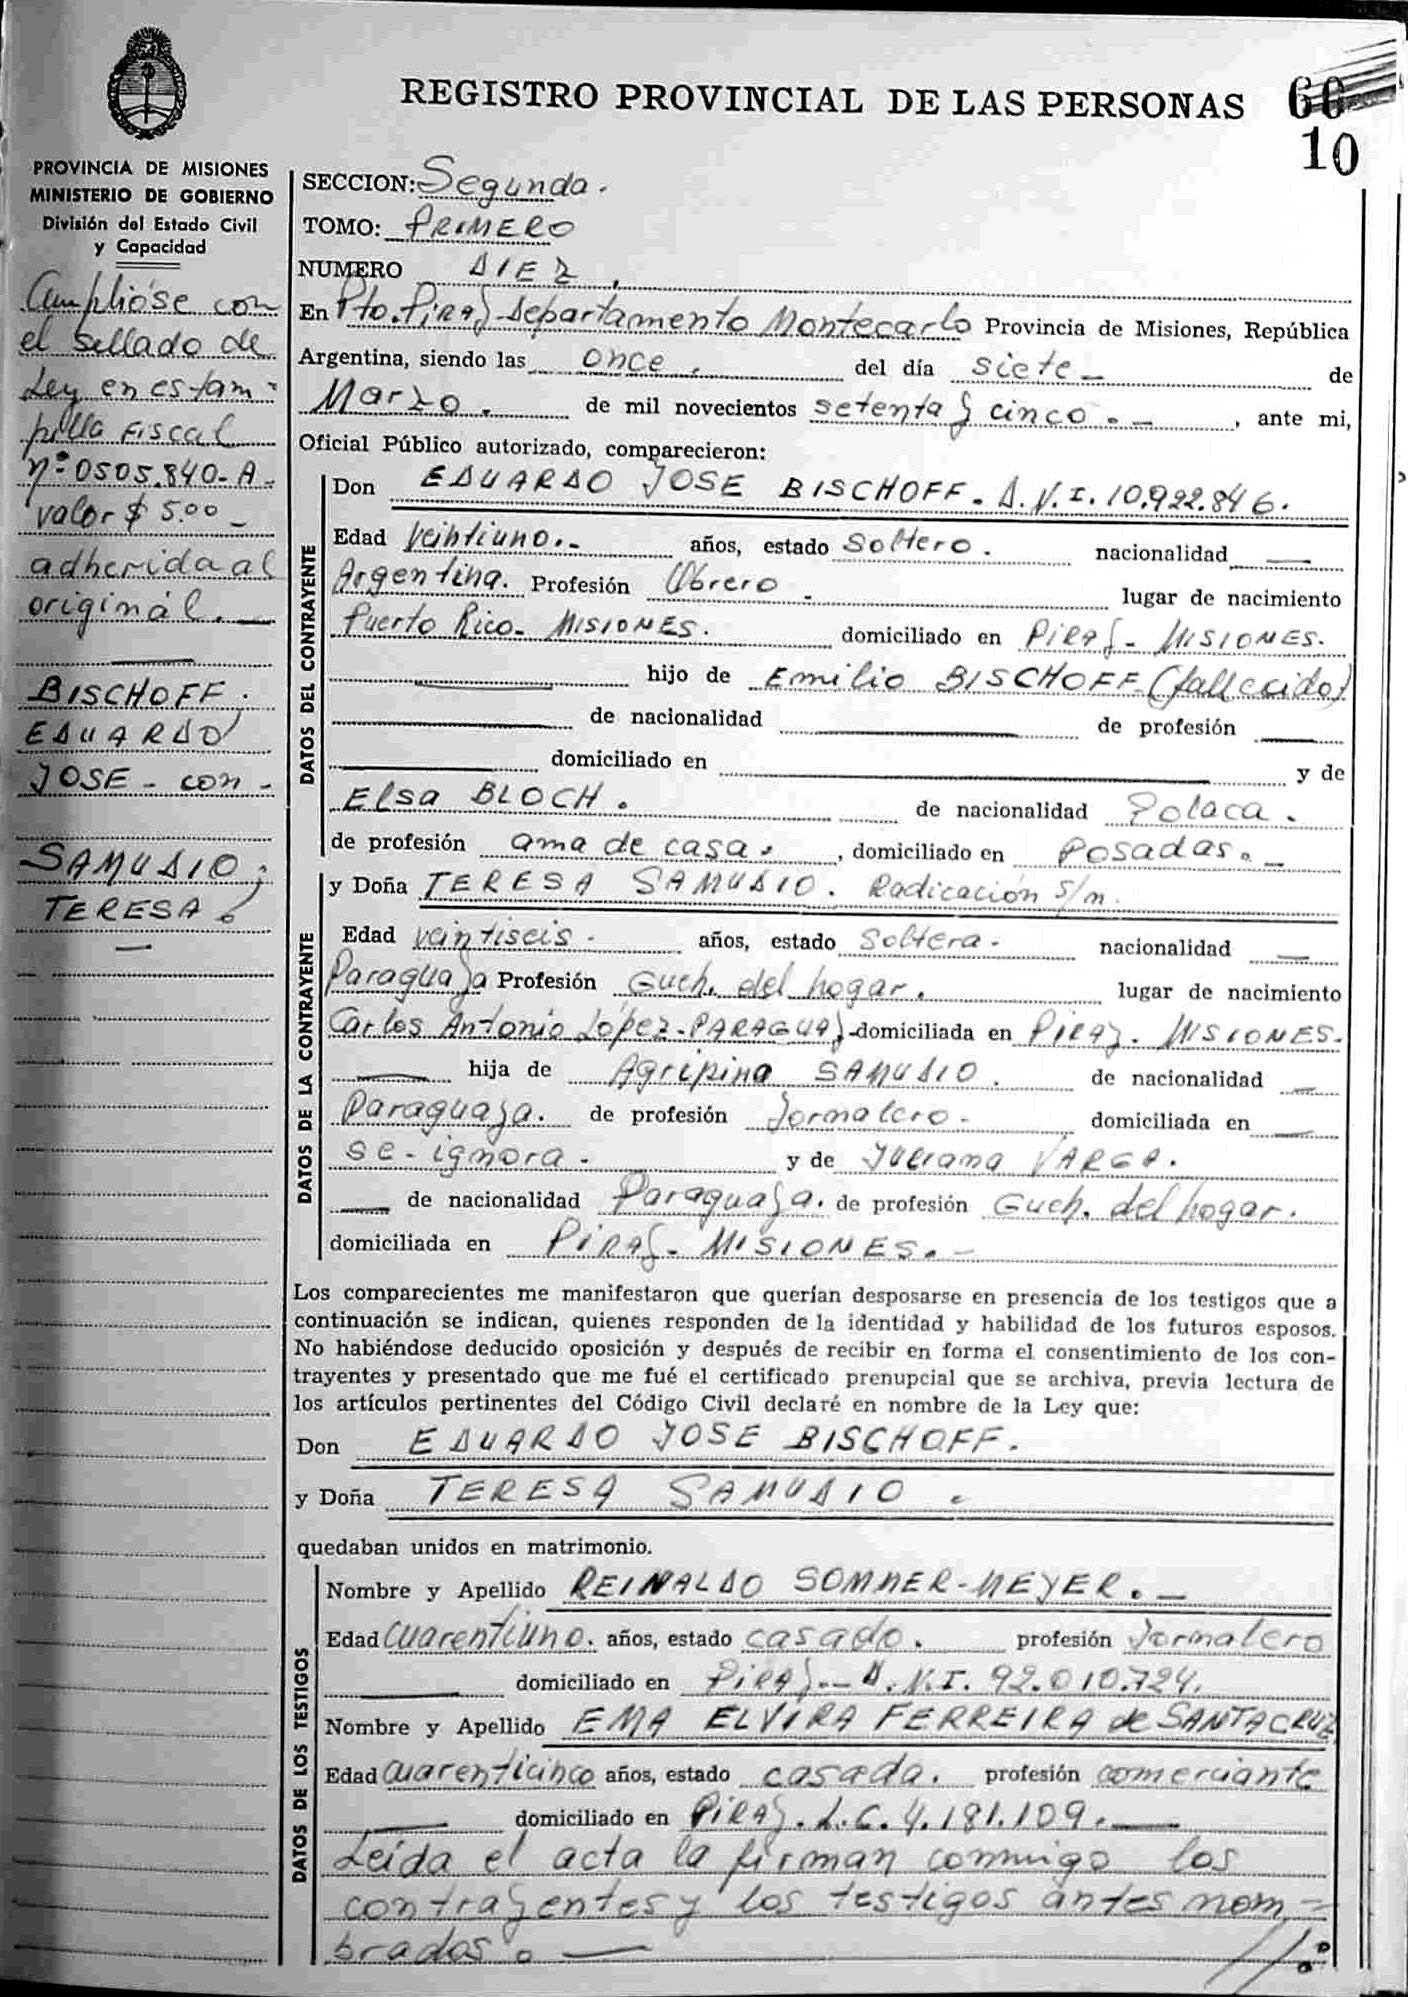 REGISTRO PROVINCIAL DE LAS PERSONAS
60
10
PROVINCIA DE MISIONES
MINISTERIO DE GOBIERNO
División del Estado Civil
y Capacidad
Cumplióse con
el sellado de
Ley en estam-
pilla Fiscal
nº 0505.840-A-
valor $ 5.00_
adherida al
originál._
BISCHOFF;
EDUARDO
JOSE - con -
SAMUDIO;
TERESA.
SECCION: Segunda.
TOMO: PRIMERO
NUMERO DIEZ.
En Pto. Piray Departamento Montecarlo Provincia de Misiones, República
Argentina, siendo las once. del día siete_ de
Marzo. de mil novecientos setenta y cinco._ , ante mi,
Oficial Público autorizado, comparecieron:
DATOS DEL CONTRAYENTE
Don EDUARDO JOSE BISCHOFF. D.N.I. 10.922.846.
Edad veintiuno._ años, estado Soltero. nacionalidad
Argentina. Profesión Obrero. lugar de nacimiento
Puerto Rico- MISIONES. domiciliado en PIRAY- MISIONES.
hijo de Emilio BISCHOFF (fallecido)
de nacionalidad de profesión
domiciliado en y de
Elsa BLOCH. de nacionalidad Polaca.
de profesión ama de casa. , domiciliado en Posadas._
DATOS DE LA CONTRAYENTE
y Doña TERESA SAMUDIO. Radicación s/n.
Edad veintiseis. años, estado Soltera. nacionalidad
Paraguaya Profesión Queh. del hogar. lugar de nacimiento
Carlos Antonio López-PARAGUAY domiciliada en PIRAY. MISIONES.
hija de Agripino SAMUDIO. de nacionalidad
Paraguaya. de profesión Jornalero. domiciliada en
se-ignora. y de Juliana VARGA.
de nacionalidad Paraguaya. de profesión Queh. del hogar.
domiciliada en PIRAY- MISIONES._
Los comparecientes me manifestaron que querían desposarse en presencia de los testigos que a
continuación se indican, quienes responden de la identidad y habilidad de los futuros esposos.
No habiéndose deducido oposición y después de recibir en forma el consentimiento de los con-
trayentes y presentado que me fué el certificado prenupcial que se archiva, previa lectura de
los artículos pertinentes del Código Civil declaré en nombre de la Ley que:
Don EDUARDO JOSE BISCHOFF.
y Doña TERESA SAMUDIO.
quedaban unidos en matrimonio.
DATOS DE LOS TESTIGOS
Nombre y Apellido REINALDO SOMMER-MEYER._
Edad cuarentiuno. años, estado casado. profesión Jornalero
domiciliado en PIRAY.- D.N.I. 92.010.724.
Nombre y Apellido EMA ELVIRA FERREIRA de SANTACRUZ
Edad cuarenticinco años, estado casada. profesión comerciante
domiciliado en PIRAY. L.C. 4.181.109._
Leída el acta la firman conmigo los
contrayentes y los testigos antes nom-
brados._ //.